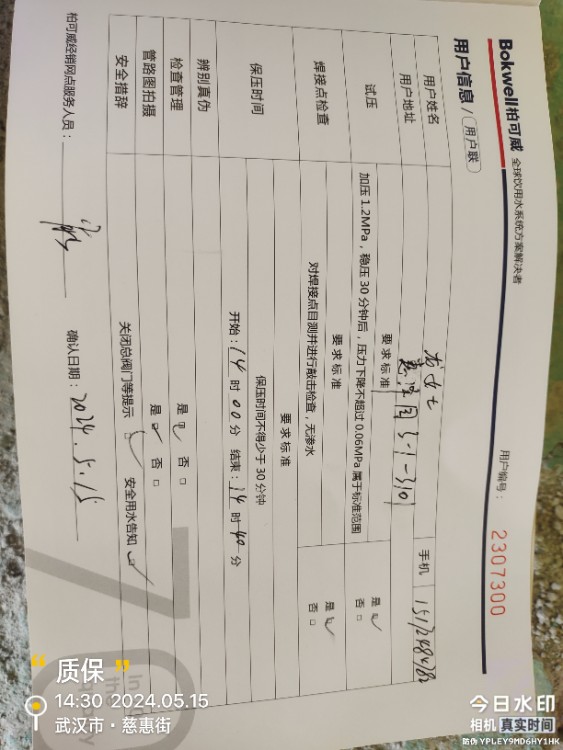 Bokwell柏可威 全球饮用水系统方案解决者
用户编号： 2307300
用户信息/用户联
用户姓名 女士 手机
用户地址 5-1-3101
试压 要求标准
加压 1.2MPa，稳压 30 分钟后，压力下降不超过 0.06MPa 属于标准范围 是 ☑ 否 □
焊接点检查 要求标准
对焊接点目测并进行敲击检查，无渗水 是 ☑ 否 □
保压时间 要求标准
保压时间不得少于 30 分钟
开始：14 时 00 分 结束：14 时 40 分
辨别真伪
检查管理 是 ☑ 否 □
管路图拍摄 是 ☑ 否 □
安全措辞 关闭总阀门等提示 ☑ 安全用水告知 ☑
柏可威经销网点服务人员：
确认日期：2024.5.15
“质保”
14:30 2024.05.15
武汉市·慈惠街
今日水印
相机 真实时间
防伪 YPLEY9MD6HY1HK